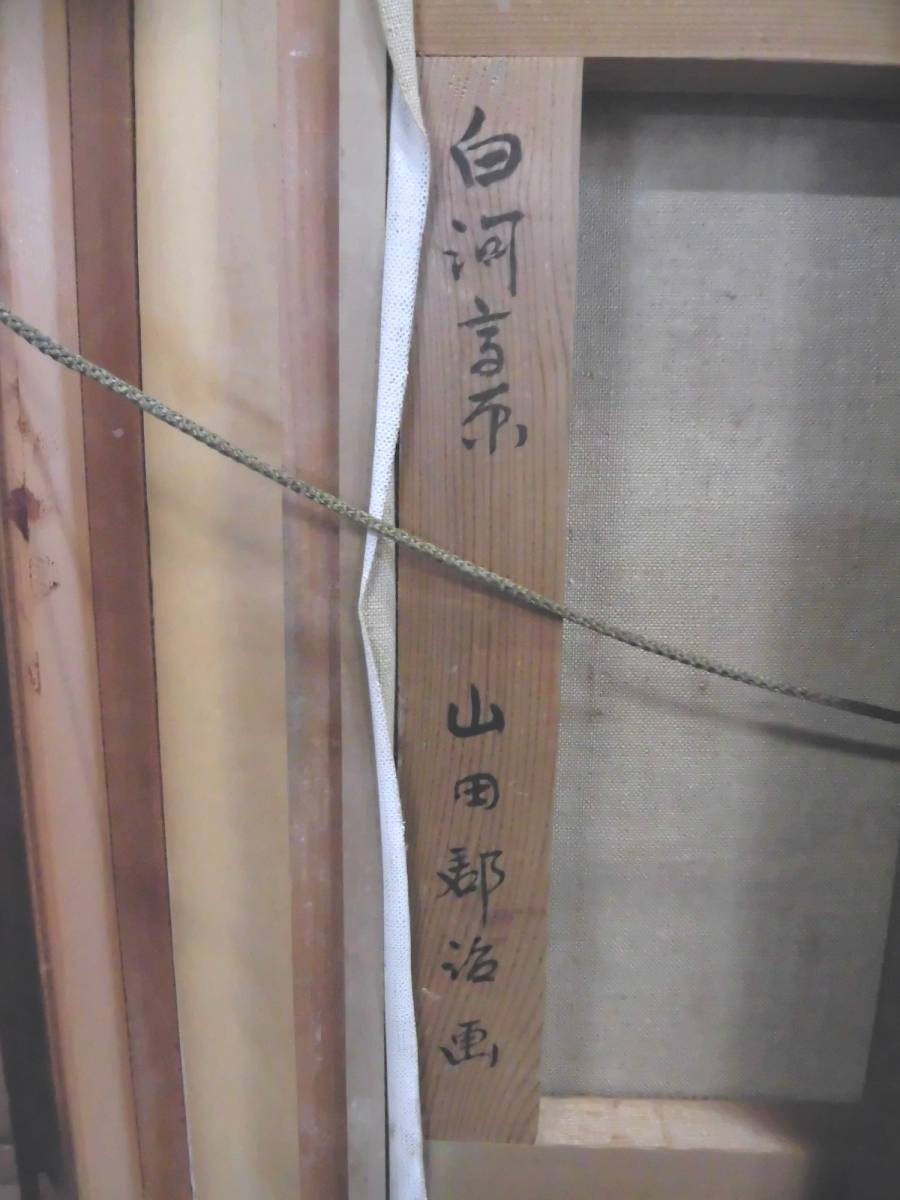 白河高原
山田郡治画